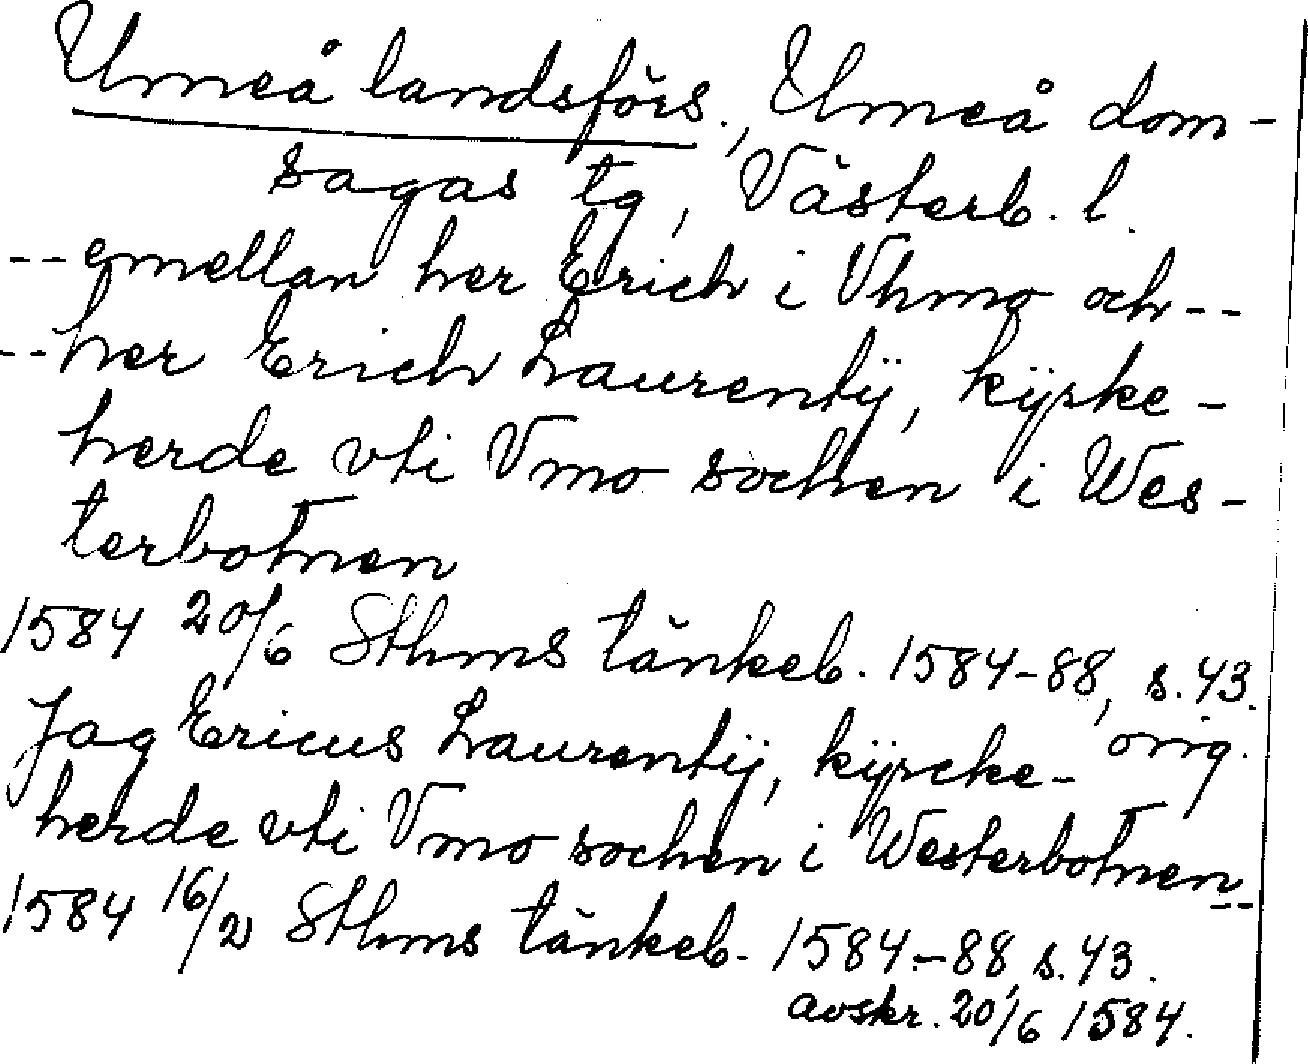 Umeå landsförs., Umeå dom-
sagas tg, Västerb. l.
--emellan her Erich i Vhmo och--
--her Erich Laurentij, kÿrke-
herde vti Vmo sochen i Wes-
terbotnen
1584 20/6 Sthms tänkeb. 1584-88, s. 43.
orig.
Jag Ericus Laurentij, kÿrcke-
herde vti Vmo sochen i Westerbotnen--
1584 16/2 Sthms tänkeb. 1584-88, s. 43.
avskr. 20/6 1584.